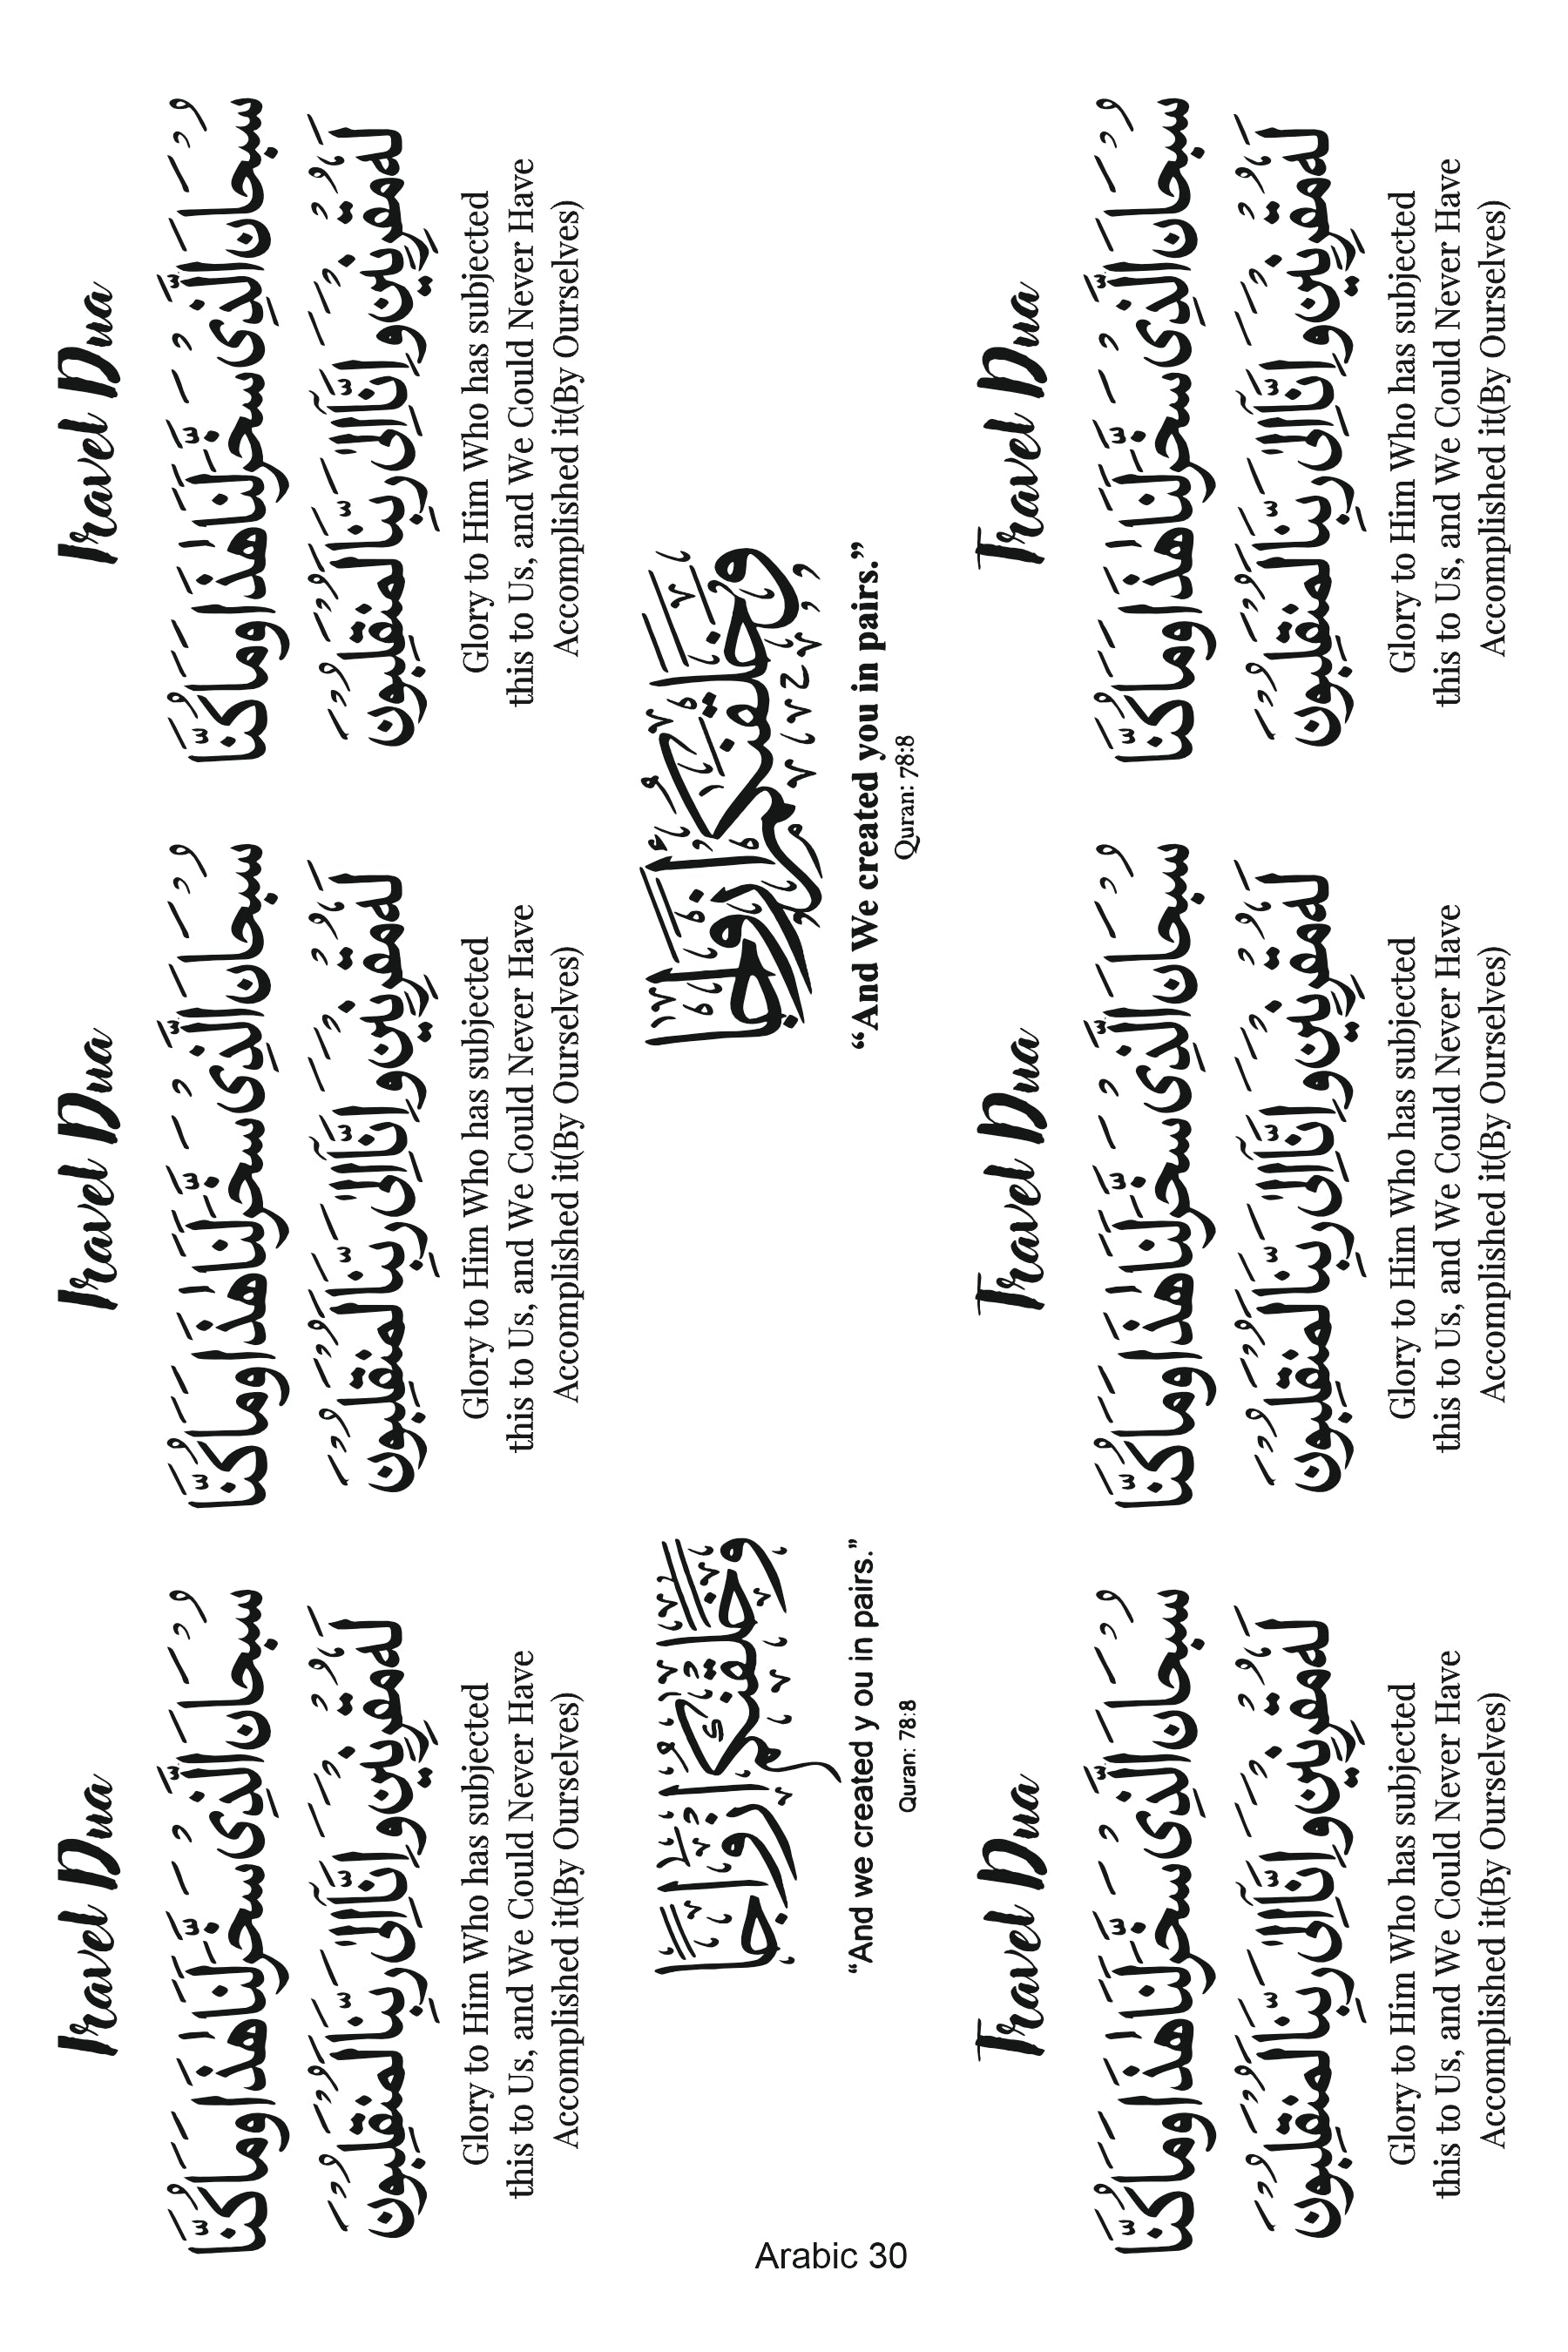 Travel Dua
سُبحَانَ الَّذِى سَخَّرَ لَنَا هٰذَا وَمَا كُنَّا
لَهُ مُقرِنِينَ وَاِنَّآ اِلىٰ رَبِّنَا لَمُنقَلِبُونَ
Glory to Him Who has subjected
this to Us, and We Could Never Have
Accomplished it(By Ourselves)
Travel Dua
سُبحَانَ الَّذِى سَخَّرَ لَنَا هٰذَا وَمَا كُنَّا
لَهُ مُقرِنِينَ وَاِنَّآ اِلىٰ رَبِّنَا لَمُنقَلِبُونَ
Glory to Him Who has subjected
this to Us, and We Could Never Have
Accomplished it(By Ourselves)
Travel Dua
سُبحَانَ الَّذِى سَخَّرَ لَنَا هٰذَا وَمَا كُنَّا
لَهُ مُقرِنِينَ وَاِنَّآ اِلىٰ رَبِّنَا لَمُنقَلِبُونَ
Glory to Him Who has subjected
this to Us, and We Could Never Have
Accomplished it(By Ourselves)
وَخَلَقْنٰكُمْ أَزْوَاجًا
“And we created y ou in pairs.”
Quran: 78:8
وَخَلَقْنٰكُمْ أَزْوَاجًا
“And We created you in pairs.”
Quran: 78:8
Travel Dua
سُبحَانَ الَّذِى سَخَّرَ لَنَا هٰذَا وَمَا كُنَّا
لَهُ مُقرِنِينَ وَاِنَّآ اِلىٰ رَبِّنَا لَمُنقَلِبُونَ
Glory to Him Who has subjected
this to Us, and We Could Never Have
Accomplished it(By Ourselves)
Travel Dua
سُبحَانَ الَّذِى سَخَّرَ لَنَا هٰذَا وَمَا كُنَّا
لَهُ مُقرِنِينَ وَاِنَّآ اِلىٰ رَبِّنَا لَمُنقَلِبُونَ
Glory to Him Who has subjected
this to Us, and We Could Never Have
Accomplished it(By Ourselves)
Travel Dua
سُبحَانَ الَّذِى سَخَّرَ لَنَا هٰذَا وَمَا كُنَّا
لَهُ مُقرِنِينَ وَاِنَّآ اِلىٰ رَبِّنَا لَمُنقَلِبُونَ
Glory to Him Who has subjected
this to Us, and We Could Never Have
Accomplished it(By Ourselves)
Arabic 30